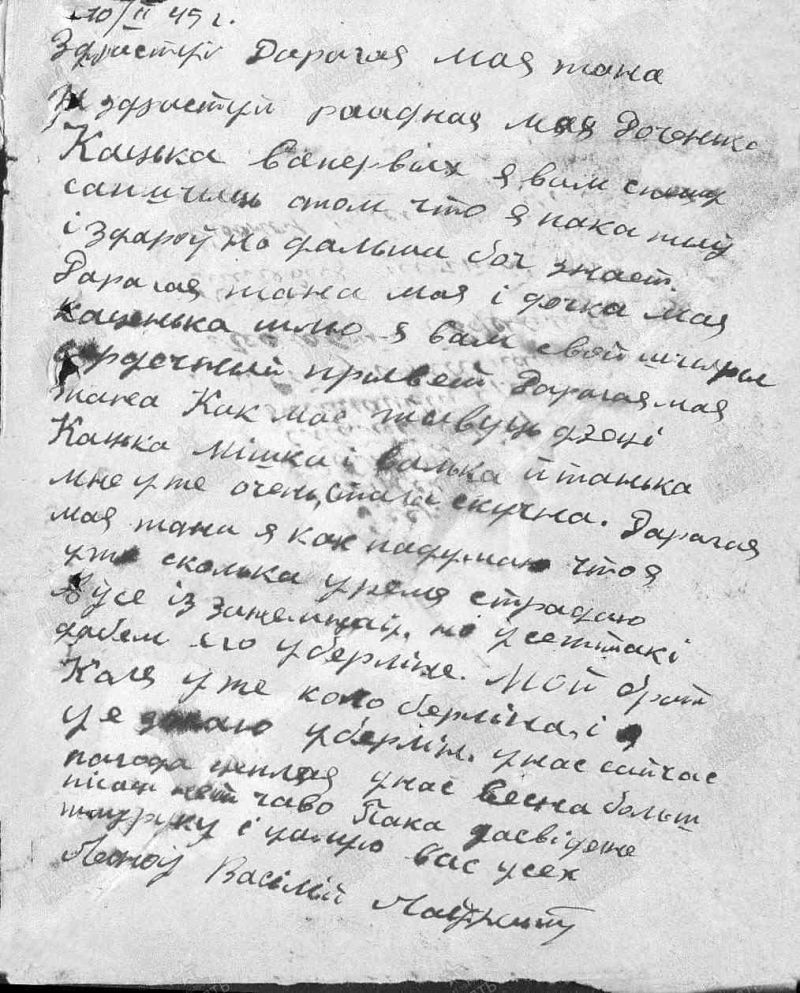 10/II 45 г.
Здраствуй Дарагая мая жана
И здраствуй раадная мая Доченька
Кацька вапервых я вам спешу
саашчиць отом что я пака жыў
і здароў но дальша бог знает.
Дарагая жана мая і дочка мая
каценька шлю я вам свой шчыры
сердечный прывет Дарагая мая
жана Как мае жывуць дзеці
Кацька мішка і валька й танька
мне уже очень стала скучна. Дарагая
мая жана я как падумаю что я
уже сколька уремя страдаю
усе із за, но усежтакі
дабем его у берліне. Мой брат
Каля уже коло берліна, і я
уе у берлін. унас сайчас
пагода цеплая унас весна больш
пісаць нет чаво Пака дасвіданя
жму руку і цалую вас усех
Васілій